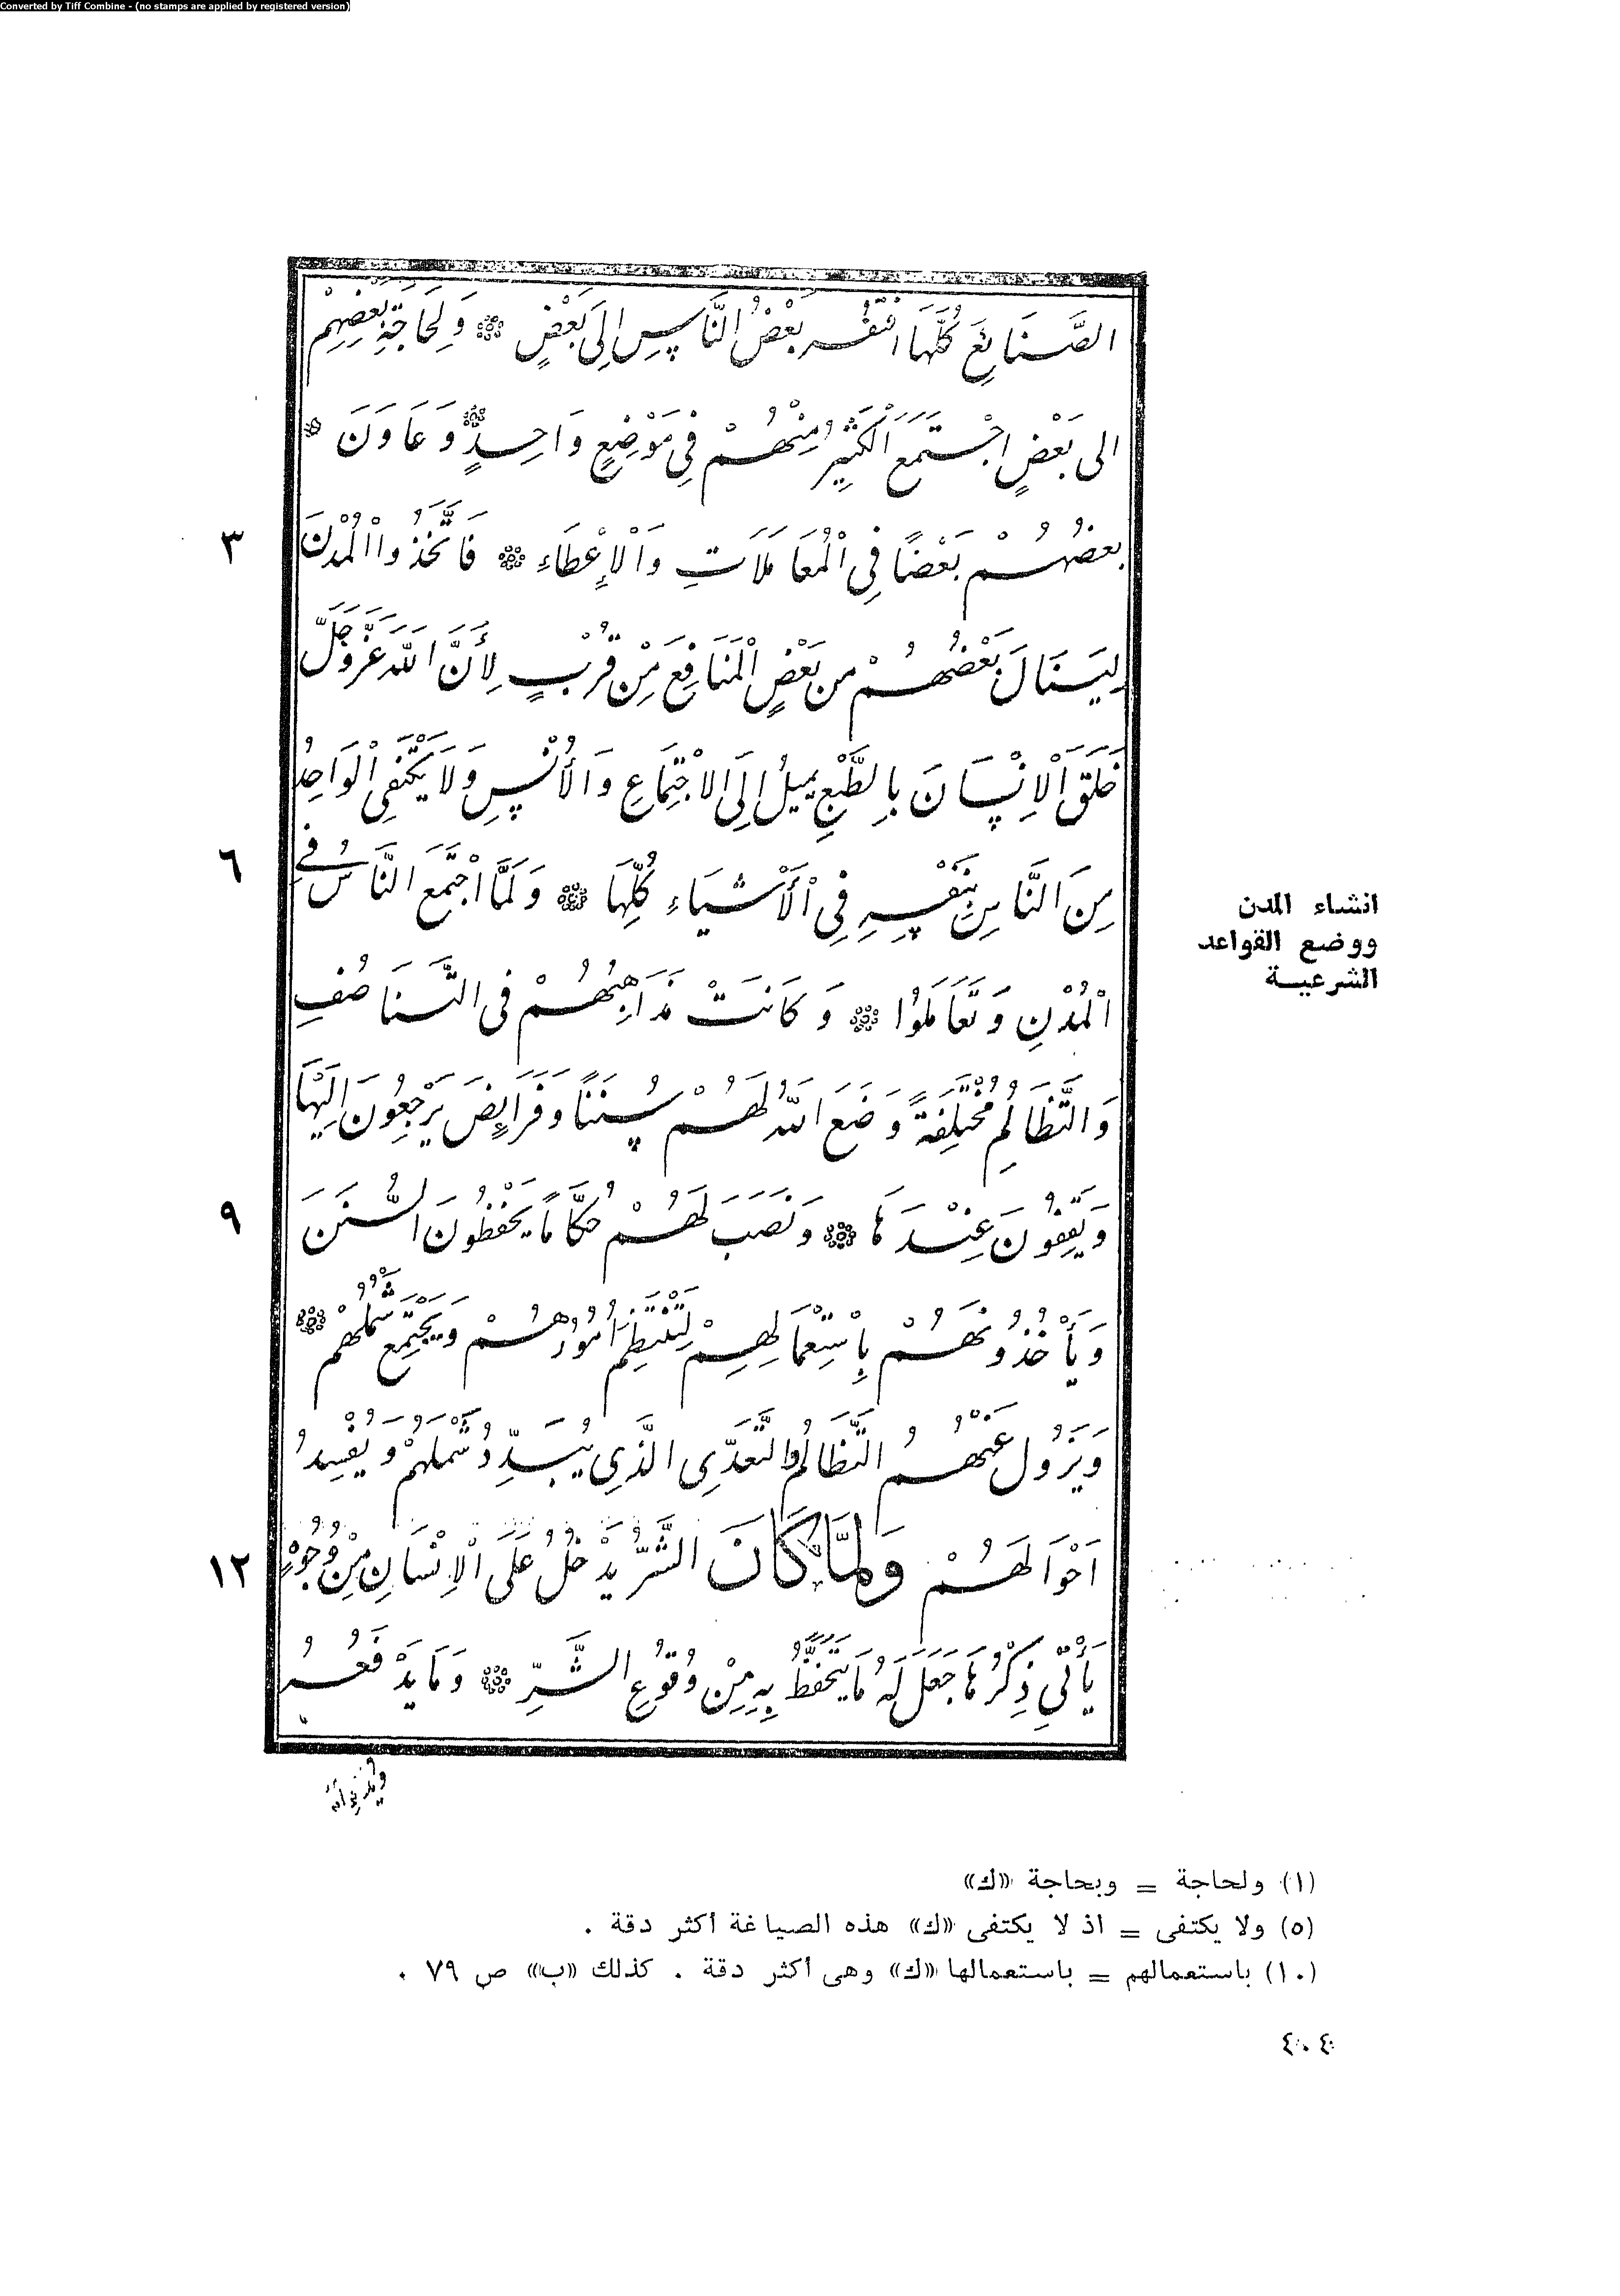 Converted by Tiff Combine - (no stamps are applied by registered version)
الصَّنَايِعَ كُلَّهَا افْتَقَرَ بَعْضُ النَّاسِ إِلَى بَعْضٍ ۞ وَلِحَاجَةِ بَعْضِهِمْ
الى بَعْضٍ اجْتَمَعَ الْكَثِيرُ مِنْهُمْ فِي مَوْضِعٍ وَاحِدٍ ۞ وَعَاوَنَ ۞
بعضُهُمْ بَعْضًا فِي الْمُعَامَلَاتِ وَالْإِعْطَاءِ ۞ فَاتَّخَذُوا الْمُدْنَ
٣
لِيَنَالَ بَعْضُهُمْ من بَعْضٍ الْمَنَافِعَ مِنْ قُرْبٍ لِأَنَّ اللَّهَ عَزَّ وَجَلَّ
خَلَقَ الْإِنْسَانَ بِالطَّبْعِ يميلُ إِلَى الِاجْتِمَاعِ وَالْأُنْسِ وَلَا يَكْتَفِي الْوَاحِدُ
مِنَ النَّاسِ بِنَفْسِهِ فِي الْأَشْيَاءِ كُلِّهَا ۞ وَلَمَّا اجْتَمَعَ النَّاسُ فِي
٦
انشاء المدن
ووضع القواعد
الشرعية
الْمُدْنِ وَتَعَامَلُوا ۞ وَكَانَتْ مَذَاهِبُهُمْ فى التَّنَاصُفِ
وَالتَّظَالُمِ مُخْتَلِفَةً وَضَعَ اللَّهُ لَهُمْ سُنَنًا وَفَرَايِضَ يَرْجِعُونَ إِلَيْهَا
وَيَقِفُونَ عِنْدَهَا ۞ وَنَصَبَ لَهُمْ حُكَّامًا يَحْفَظُونَ السُّنَنَ
٩
وَيَأْخُذُونَهُمْ بِاسْتِعْمَالِهِمْ لِتَنْتَظِمَ أُمُورُهُمْ وَيَجْتَمِعَ شَمْلُهُمْ ۞
وَيَزُولَ عَنْهُمُ التَّظَالُمُ وَالتَّعَدِّى الَّذِى يُبَدِّدُ شَمْلَهُمْ وَيُفْسِدُ
اَحْوَالَهُمْ وَلَمَّا كَانَ الشَّرُّ يَدْخُلُ عَلَى الْإِنْسَانِ مِنْ وُجُوهٍ
١٢
يَأْتِي ذِكْرُهَا جَعَلَ لَهُ مَا يَتَحَفَّظُ بِهِ مِنْ وُقُوعِ الشَّرِّ ۞ وَمَا يَدْفَعُهُ
(١) ولحاجة = وبحاجة «ك»
(٥) ولا يكتفى = اذ لا يكتفى «ك» هذه الصياغة أكثر دقة .
(١٠) باستعمالهم = باستعمالها «ك» وهى أكثر دقة . كذلك «ب» ص ٧٩ .
٤٠٤